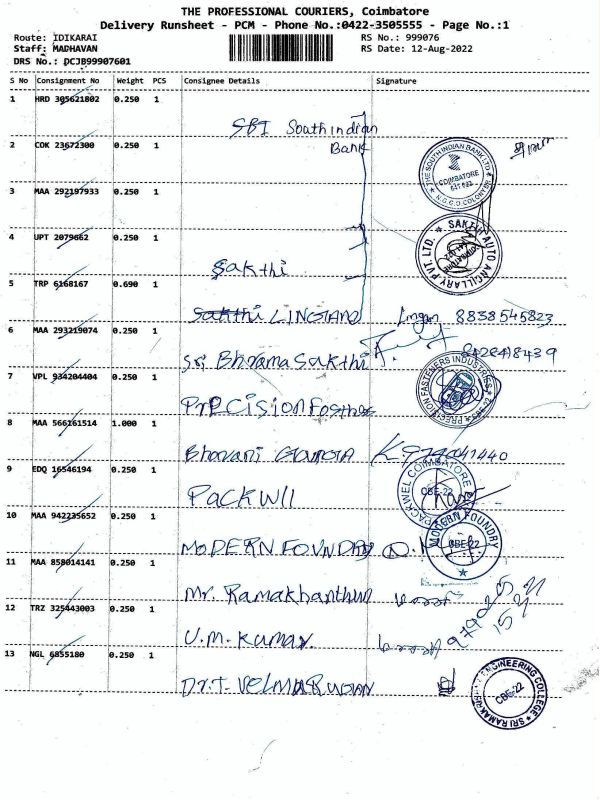 THE PROFESSIONAL COURIERS, Coimbatore
Delivery Runsheet - PCM - Phone No.:0422-3505555 - Page No.:1
Route: IDIKARAI
RS No.: 999076
Staff: MADHAVAN
RS Date: 12-Aug-2022
DRS No.: DCJB99907601
S No Consignment No Weight PCS Consignee Details Signature
1 HRD 305621802 0.250 1
SBI South indian
Bank
2 COK 23672300 0.250 1
THE SOUTH INDIAN BANK LTD
COIMBATORE
N.G.G.O. COLONY
3 MAA 292197933 0.250 1
4 UPT 2079662 0.250 1
SAKTHI AUTO ANCILLARY PVT. LTD.
Sakthi
5 TRP 6168167 0.690 1
Sakthi LINGAM Lingam 8838545823
6 MAA 293219074 0.250 1
Sri Bhrama Sakthi
7 VPL 934204404 0.250 1
PRECISION FASTENERS INDUSTRIES
PreCision
8 MAA 566161514 1.000 1
Bhavani
9 EDQ 16546194 0.250 1
PACKWEL COIMBATORE
CBE-22
PACKWll
10 MAA 942235652 0.250 1
MODERN FOUNDRY
CBE-22
MODERN FOUNDRY
11 MAA 858014141 0.250 1
Mr. Ramakhanthun
12 TRZ 325443003 0.250 1
U.M. Kumar.
13 NGL 6855180 0.250 1
SRI RAMAKRISHNA ENGINEERING COLLEGE
CBE-22
Dr.T.